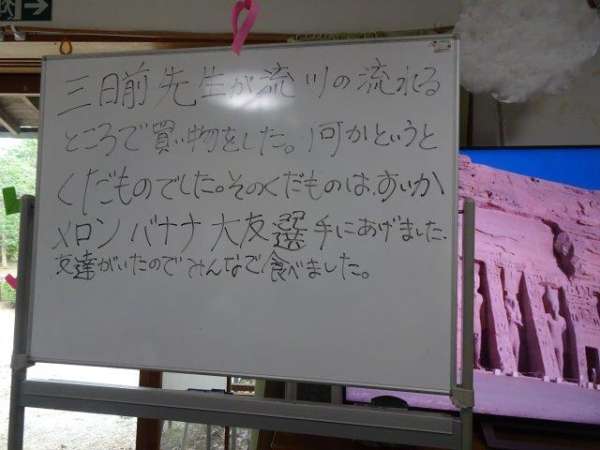 三日前先生が流川の流れる
ところで買い物をした。何かというと
くだものでした。そのくだものは、すいか
メロンバナナ大友選手にあげました。
友達がいたのでみんなで食べました。